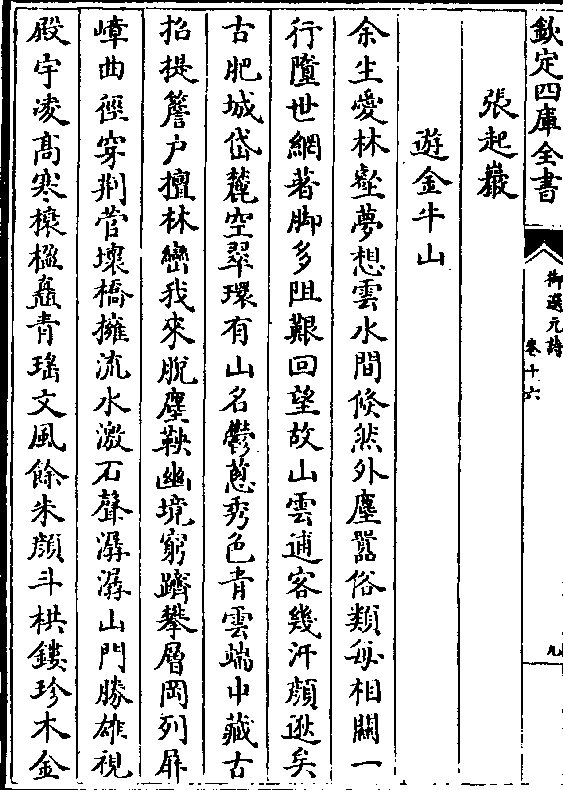 欽定四庫全書
御選元詩
卷十六
九
張起巖
遊金牛山
余生愛林壑夢想雲水間倐然外塵囂俗類毎相關一
行墮世網著脚多阻艱回望故山雲逋客幾汗顔逖矣
古肥城岱麓空翠環有山名鬱葱秀色青雲端中藏古
招提簷户擅林巒我來脫塵鞅幽境窮躋攀層岡列屏
嶂曲徑穿荆菅壞橋擁流水激石聲潺潺山門勝雄視
殿宇凌髙寒欀楹矗青瑶文風餘朱顔斗栱鏤珍木金